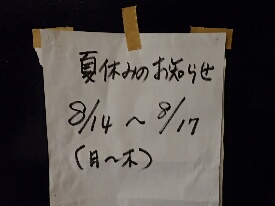 夏休みのお知らせ
8/14 〜 8/17
(月〜木)